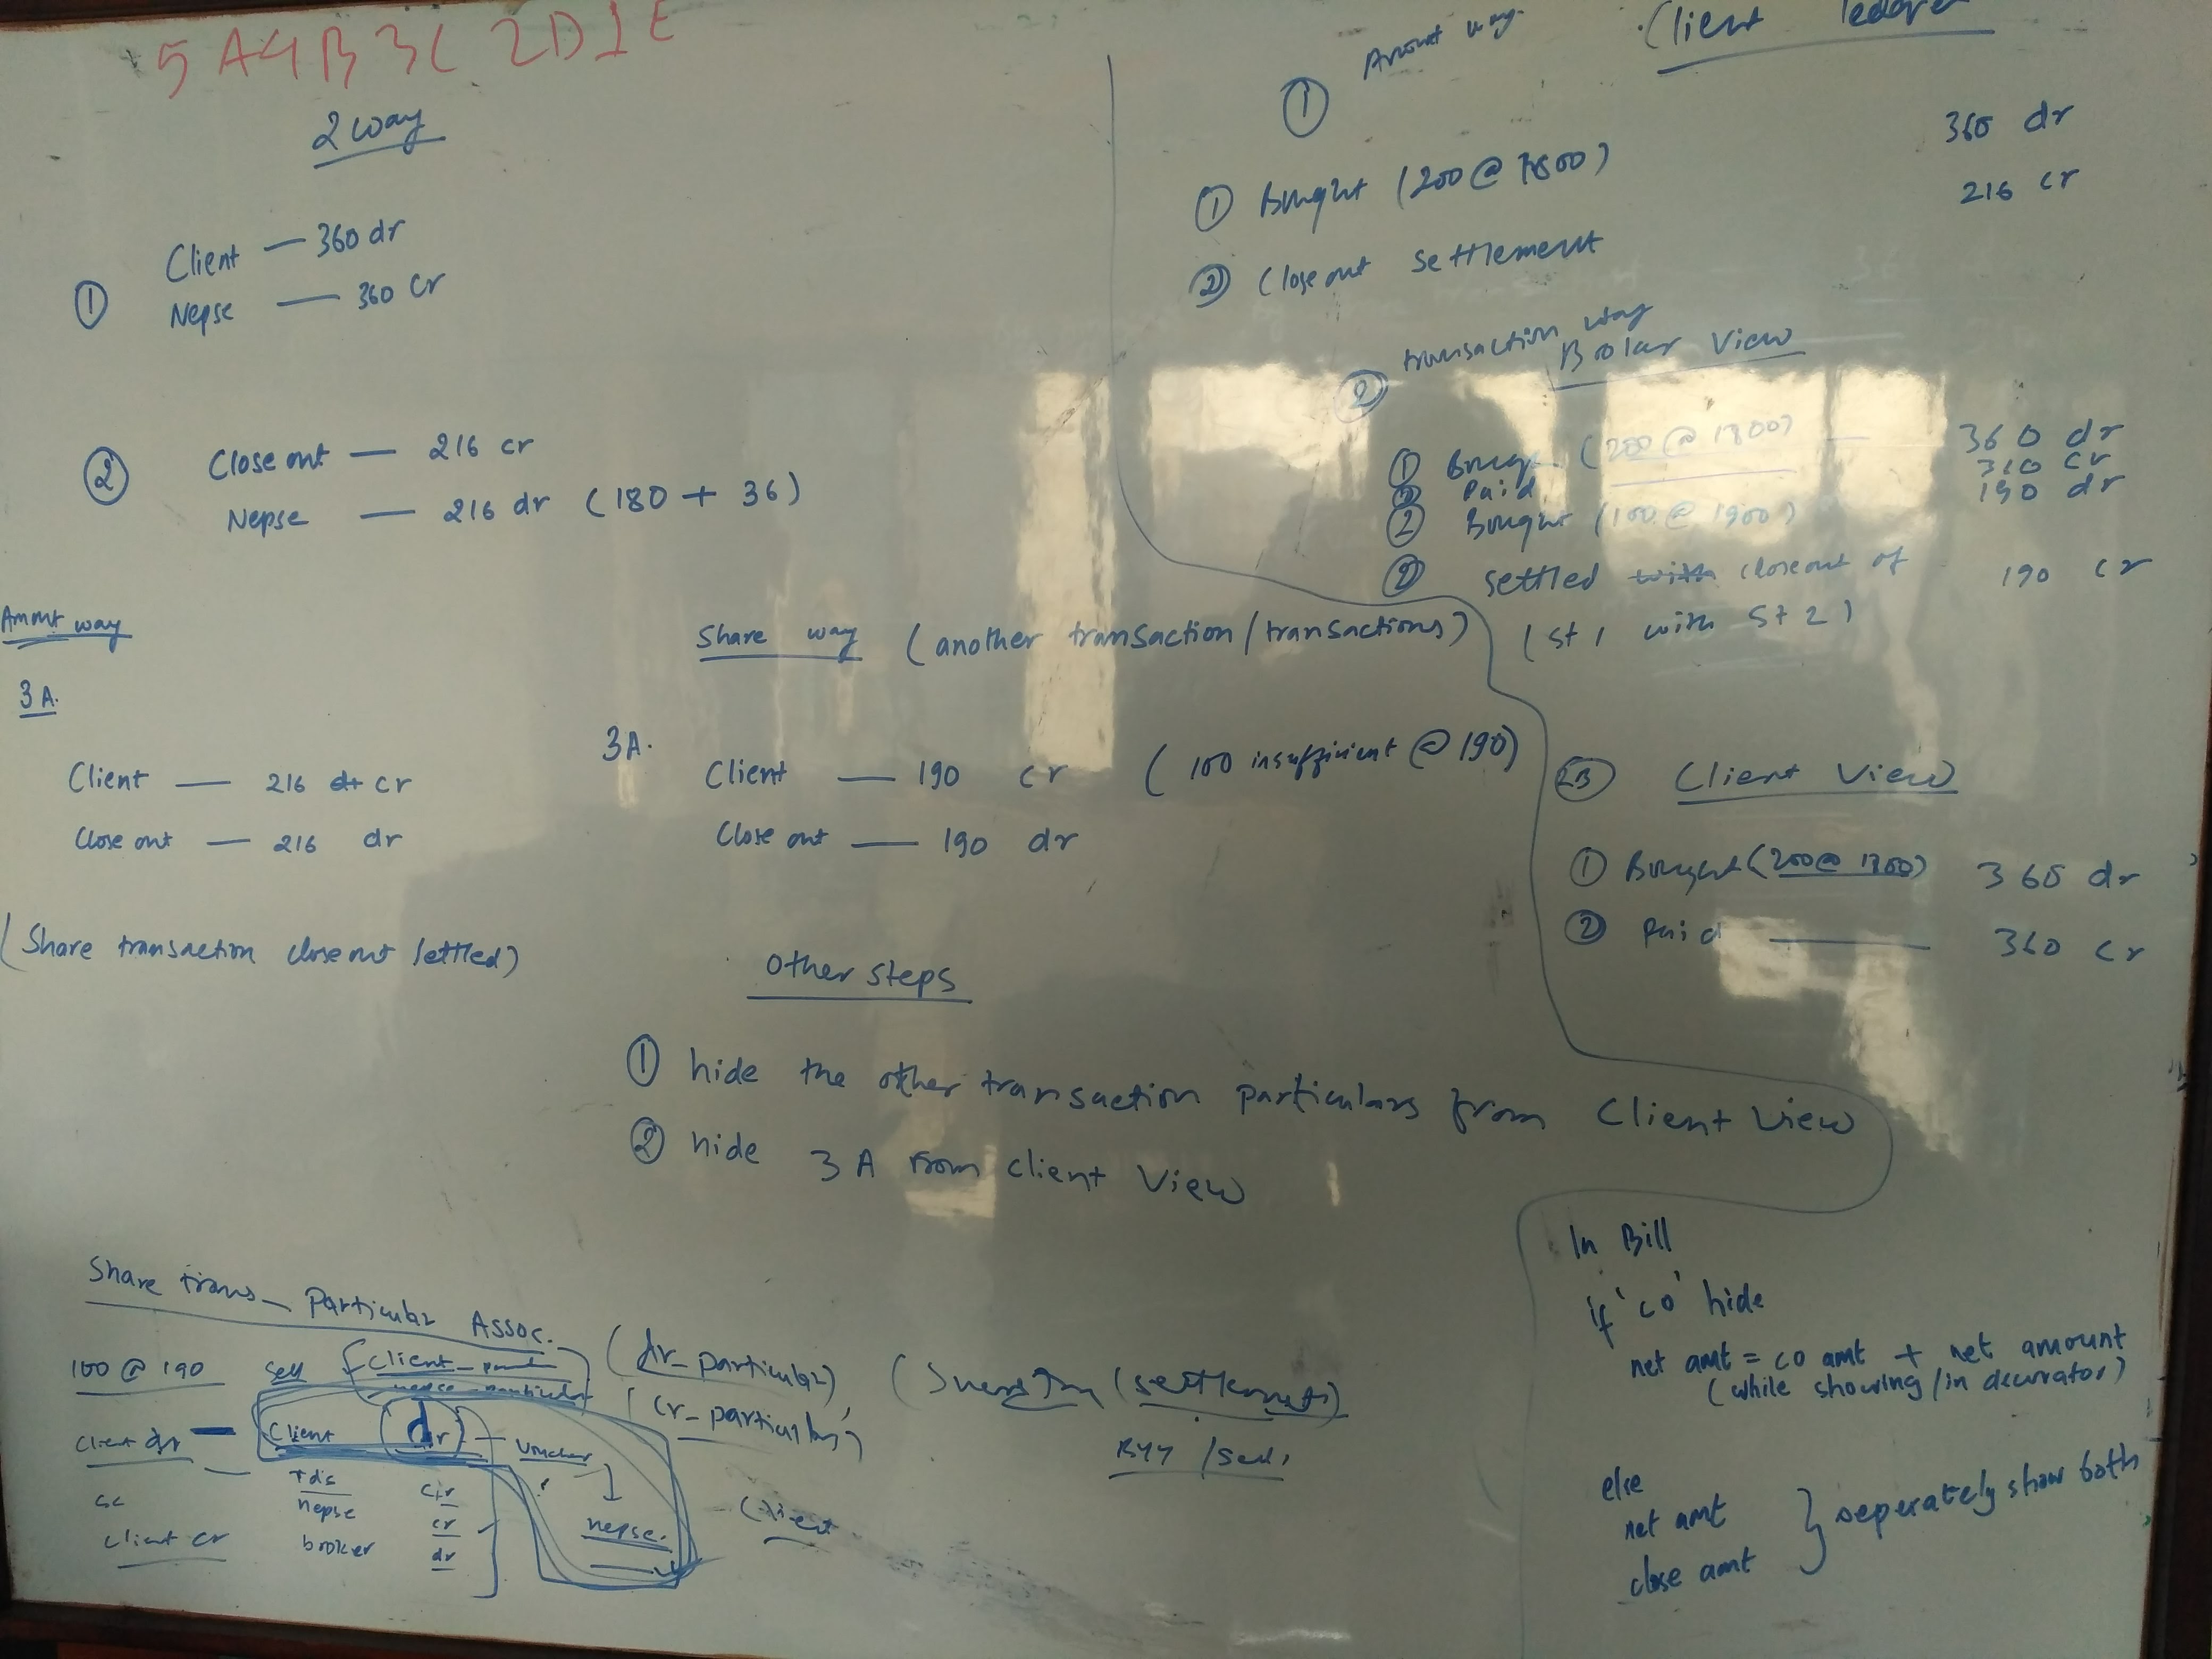 5A4B3C2D1E
2 way
① Client — 360 dr
Nepse — 360 cr
② Close out — 216 cr
Nepse — 216 dr (180 + 36)
Ammt way
3 A.
Client — 216 dt cr
Close out — 216 dr
(Share transaction close out settled)
Share way (another transaction/transactions)
3A.
Client — 190 cr (100 insufficient @ 190)
Close out — 190 dr
Other steps
① hide the other transaction particulars from Client View
② hide 3A from client View
Share trans_ Particular Assoc.
100 @ 190 sell
client_
nepse_particular
(dr_particular)
(cr_particular)
(settlement)
Client dr — Client (dr) — voucher
tds
nepse cr
broker dr
client cr
nepse.
Client
Client ledger
① Amount way
① Bought (200 @ 1800) 360 dr
② Close out settlement 216 cr
② transaction way
Broker View
① Bought (200 @ 1800) — 360 dr
Paid 360 cr
② Bought (100 @ 1900) 190 dr
② settled with closeout of 190 cr
(st 1 with st 2)
2B Client View
① Bought (200 @ 1800) 360 dr
② Paid — 360 cr
In Bill
if 'co' hide
net amt = co amt + net amount
(while showing/in decorator)
else
net amt
close amt
} seperately show both